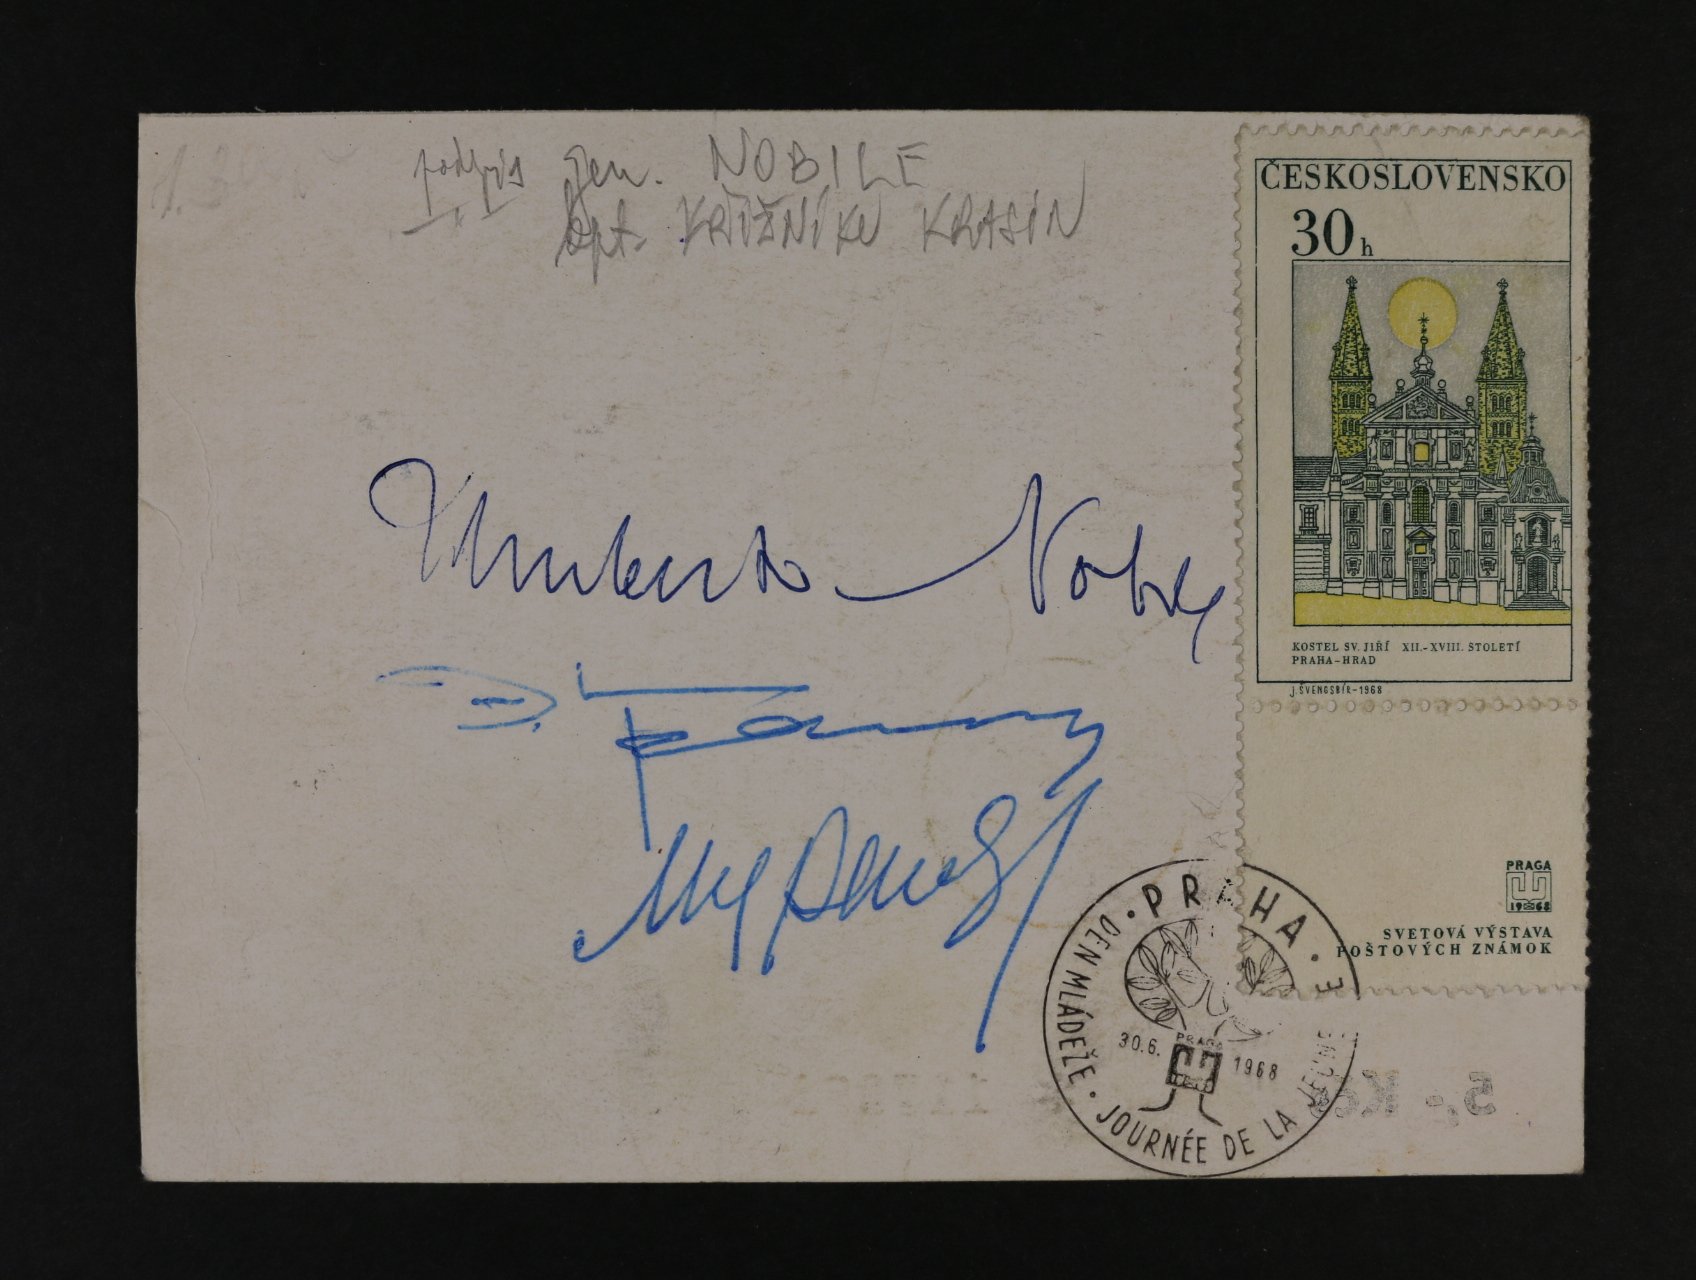 podpis gen. NOBILE
kpt. KŘIŽNÍKU KRASIN
ČESKOSLOVENSKO
30 h
KOSTEL SV. JIŘÍ XII.-XVIII. STOLETÍ
PRAHA-HRAD
J. ŠVENGSBÍR-1968
Umberto Nobile
PRAGA
1968
SVETOVÁ VÝSTAVA
POŠTOVÝCH ZNÁMOK
PRAHA
DEN MLÁDEŽE
30.6. 1968
PRAGA
JOURNÉE DE LA JEUNE
5,- Kčs